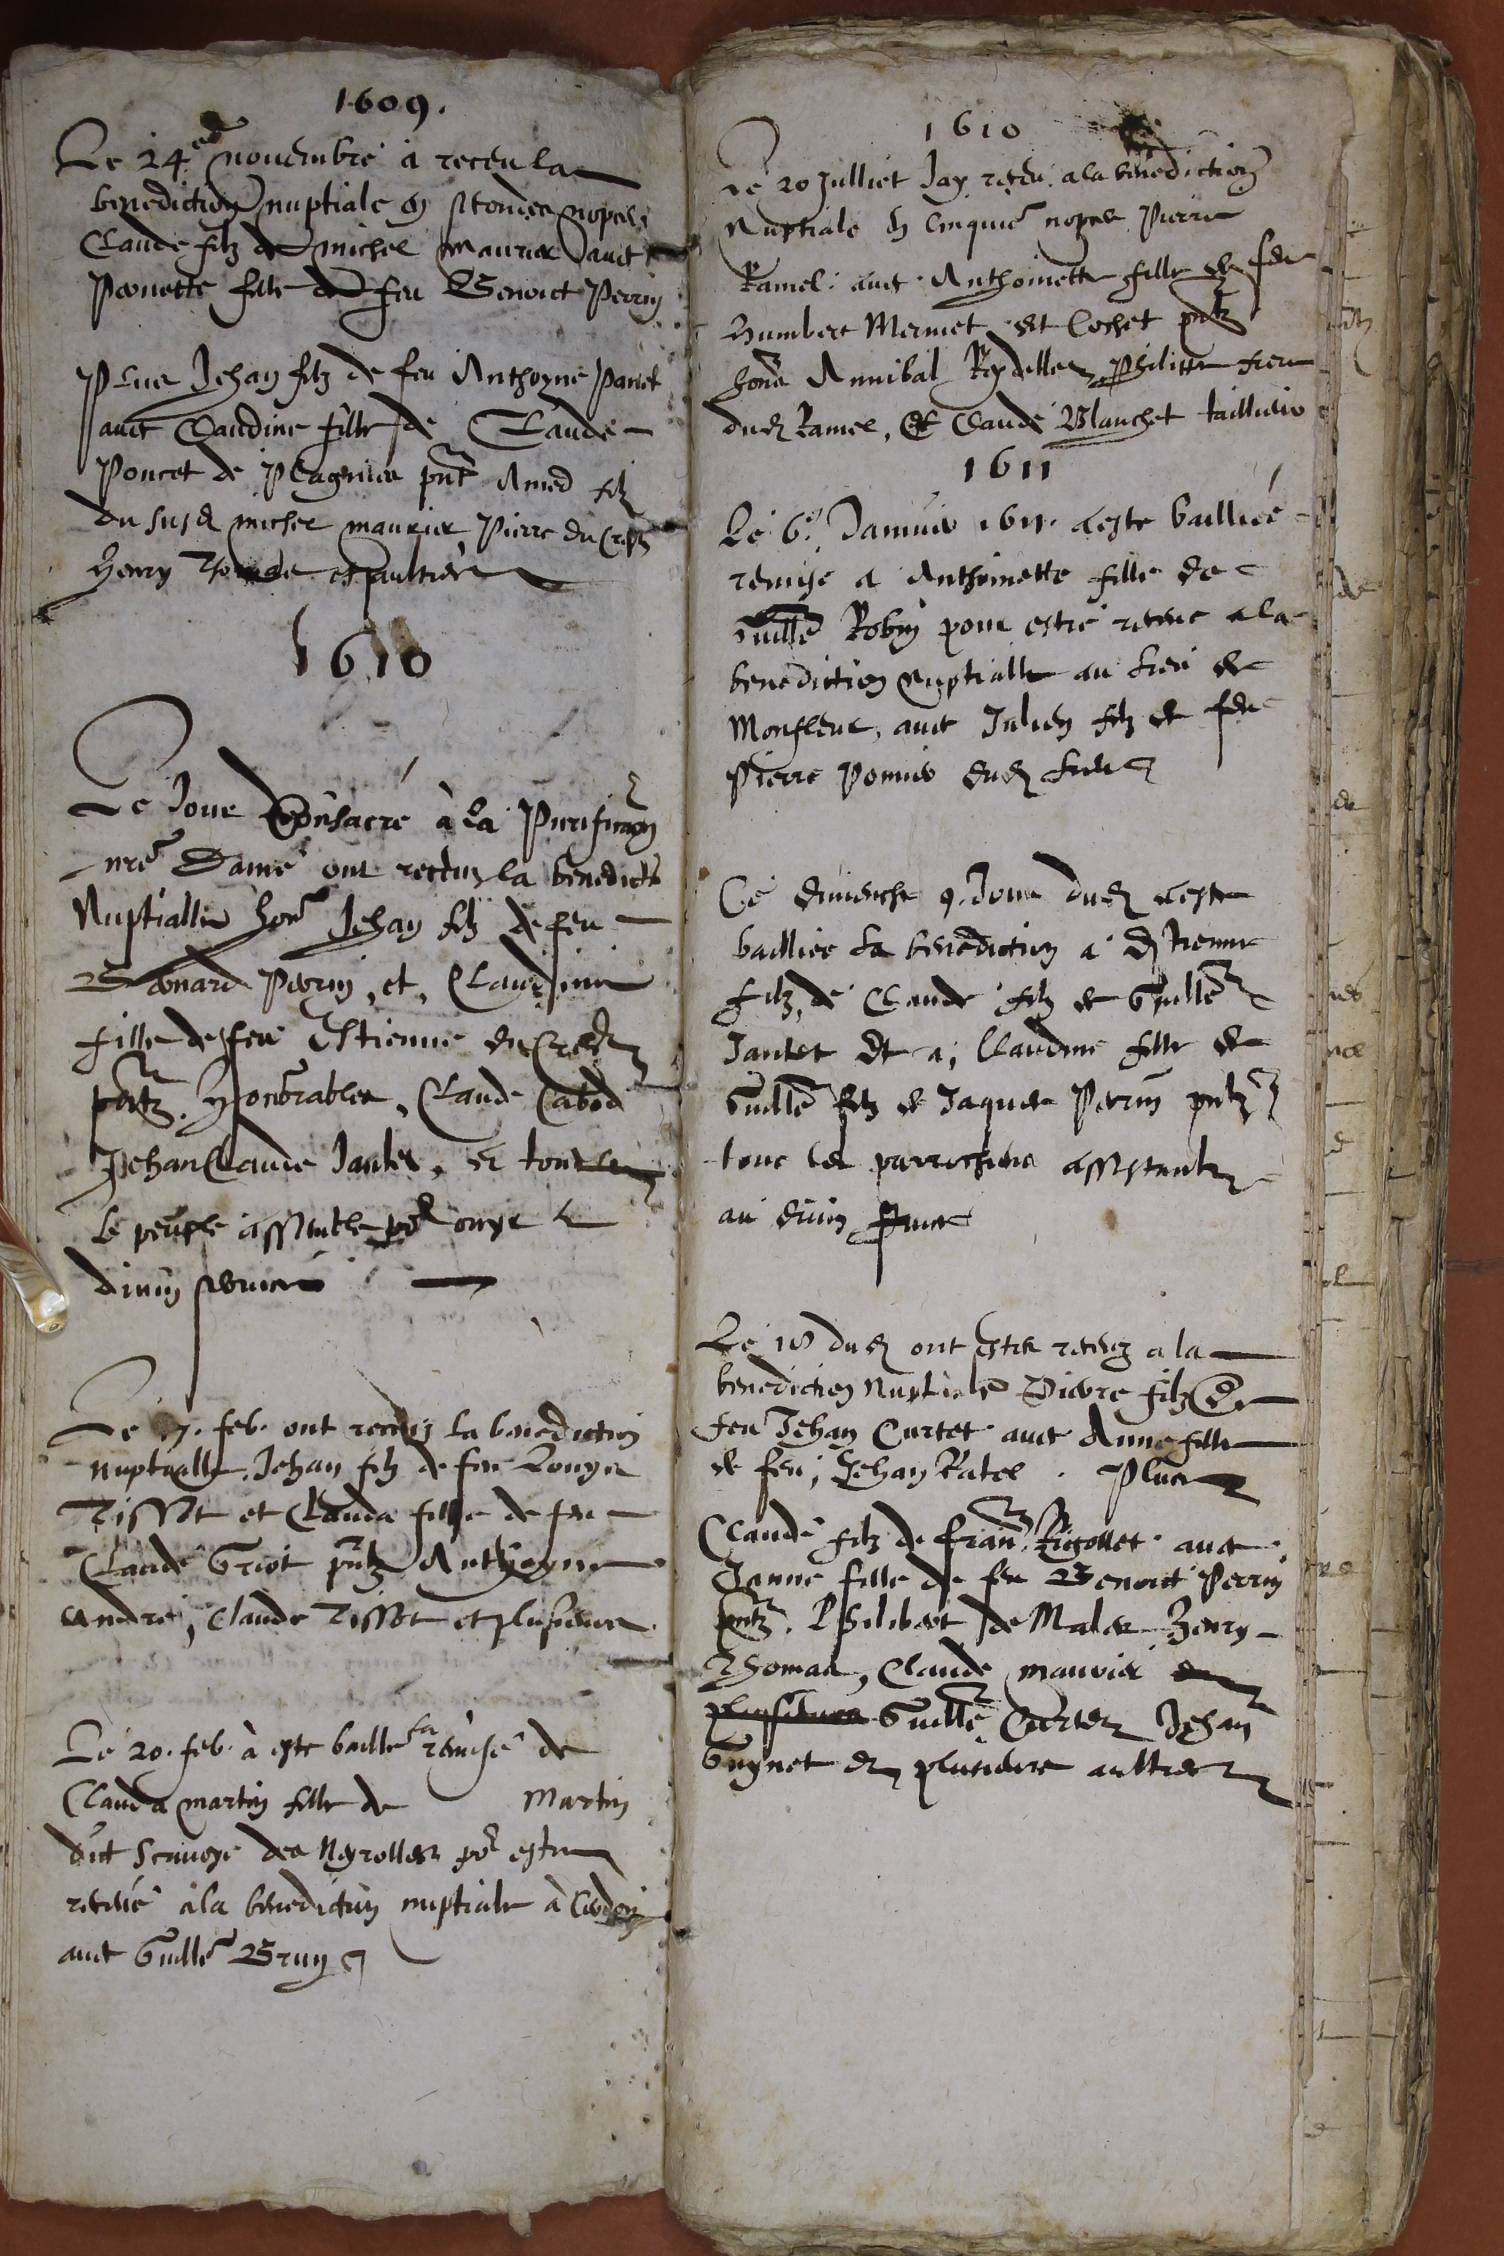 1609.
Le 24e novembre a receu la
benediction nuptiale en secondes nopces
Claude filz de michel maurier avec
Pernette fille de feu Benoict Perrin
Plus Jehan filz de feu Anthoyne Panet
avec Claudine fille de Claude
Poncet de Plagnies pnt Amed filz
du susd michel maurier Pierre du Crest
Henry Thomas et aultres
1610
Le Jour Consacré à la Purification
nre Dame ont receuz la benedicto
Nuptialle honr Jehan filz de feu
Bernard Perrin, et, Claudine
fille de feu Estienne du Crest
pntz. Honnorables, Claude Cabod
Jehan Claude Jantet, et tout
le peuple assemble por ouyr le
divin service
Le 7. feb. ont receuz la benediction
nuptialle, Jehan filz de feu Louys
Tissot et Clauda fille de feu
Claude Griot pntz Anthoyne
Andre, Claude Tissot et plusieurs
Le 20. feb. à este baillé la remise de
Clauda martin fille de Martin
dict des Neyrolles por estre
receue à la benediction nuptiale à Cerdon
avec Guille Brun
1610
Le 20 Julliet Jay receu a la benediction
Nuptiale en cinquie nopces Pierre
Ramel avec Anthoinette fille de feu
Humbert Mermet dit Cochet pntz
honr Annibal Reydellet, Philippe frere
dud Ramel, Et Claude Blanchet taillieur
1611
Le 6e Janvier 1611 a este bailliée
remise a Anthoinette fille de
Guille Robin pour estre receue a la
benediction nuptialle au lieu de
Monfleur, avec Julien filz de feu
Pierre Ponnier dud lieu
Ce dimenche 9. Jour dud a este
bailliee la benediction a Estienne
filz, de Claude filz de Guille
Jantet Et a, Claudine fille de
Guille filz de Jaques Perrin pntz
tous les parrochiens assistantz
au divin service
Le 18 dud ont estes receuz a la
benediction Nuptiale Pierre filz de
feu Jehan Curtet avec Anne fille
de feu, Jehan Ratel. Plus
Claude filz de Fran Rigollet avec
Janne fille de feu Benoict Perrin
pntz. Philibert de Males Henry
Thomas, Claude maurier et
plusieurs Guille Curtet Jehan
Guynet et plusieurs aultres